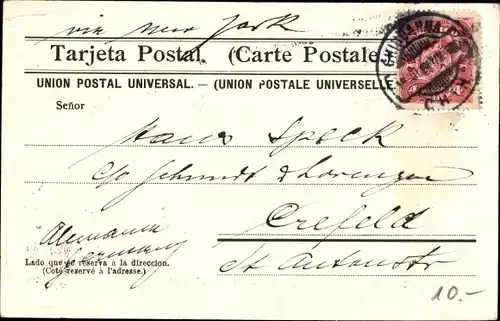 via New York
Tarjeta Postal. (Carte Postale.
UNION POSTAL UNIVERSAL. — (UNION POSTALE UNIVERSELLE
Señor
Hans Speck
c/o Schmidt & Lorenzen
Crefeld
Alemania
Germany
Lado que se reserva á la direccion.
(Coté reservé à l'adresse.)
St Antonstr
10.-